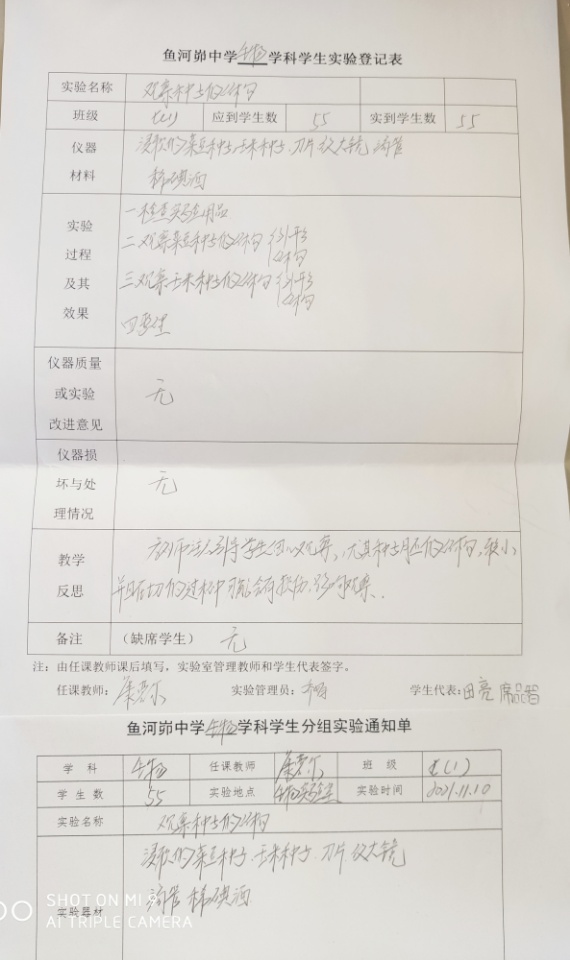 鱼河峁中学生物学科学生实验登记表
实验名称 观察种子的结构
班级 七(1) 应到学生数 55 实到学生数 55
仪器 浸软的菜豆种子、玉米种子、刀片、放大镜、滴管
材料 稀碘酒
实验 一检查实验用品
过程 二观察菜豆种子的结构 外形
结构
及其 三观察玉米种子的结构 外形
结构
效果 四
仪器质量
或实验 无
改进意见
仪器损
坏与处 无
理情况
教学 教师注意引导学生仔细观察,尤其种子胚的结构,较小,
反思 并且在切的过程中可能会有损伤,影响观察.
备注 (缺席学生) 无
注：由任课教师课后填写，实验室管理教师和学生代表签字。
任课教师： 实验管理员： 学生代表:田亮
鱼河峁中学生物学科学生分组实验通知单
学 科 生物 任课教师 班 级 七(1)
学 生 数 55 实验地点 生物实验室 实验时间 2021.11.10
实验名称 观察种子的结构
浸软的菜豆种子、玉米种子、刀片、放大镜
实验器材 滴管 稀碘酒
SHOT ON MI
AI TRIPLE CAMERA